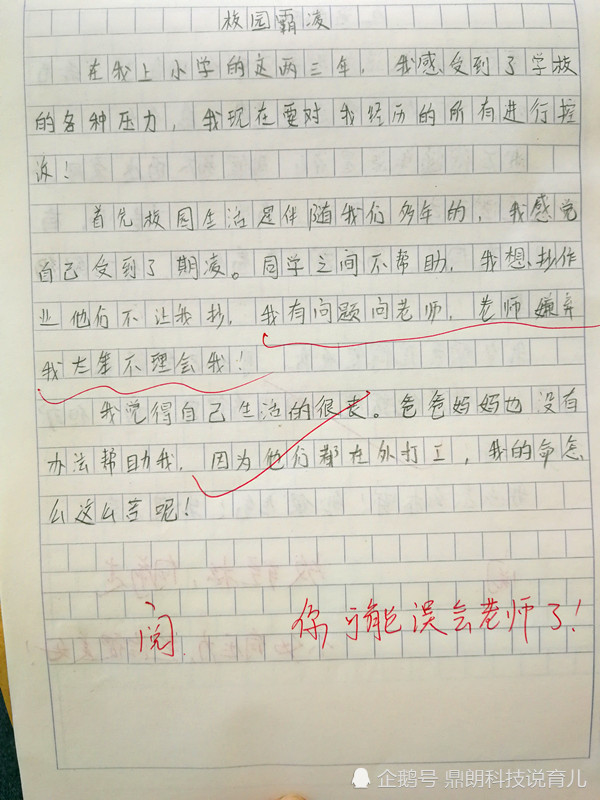 校园霸凌
在我上小学的这两三年，我感受到了学校
的各种压力，我现在要对我经历的所有进行控
诉！
首先校园生活是伴随我们多年的，我感觉
自己受到了期凌。同学之间不帮助，我想抄作
业他们不让我抄，我有问题问老师，老师嫌弃
我太笨不理会我！
我觉得自己生活的很丧。爸爸妈妈也没有
办法帮助我，因为他们都在外打工，我的命怎
么这么苦呢！
阅 你可能误会老师了！
企鹅号 鼎朗科技说育儿